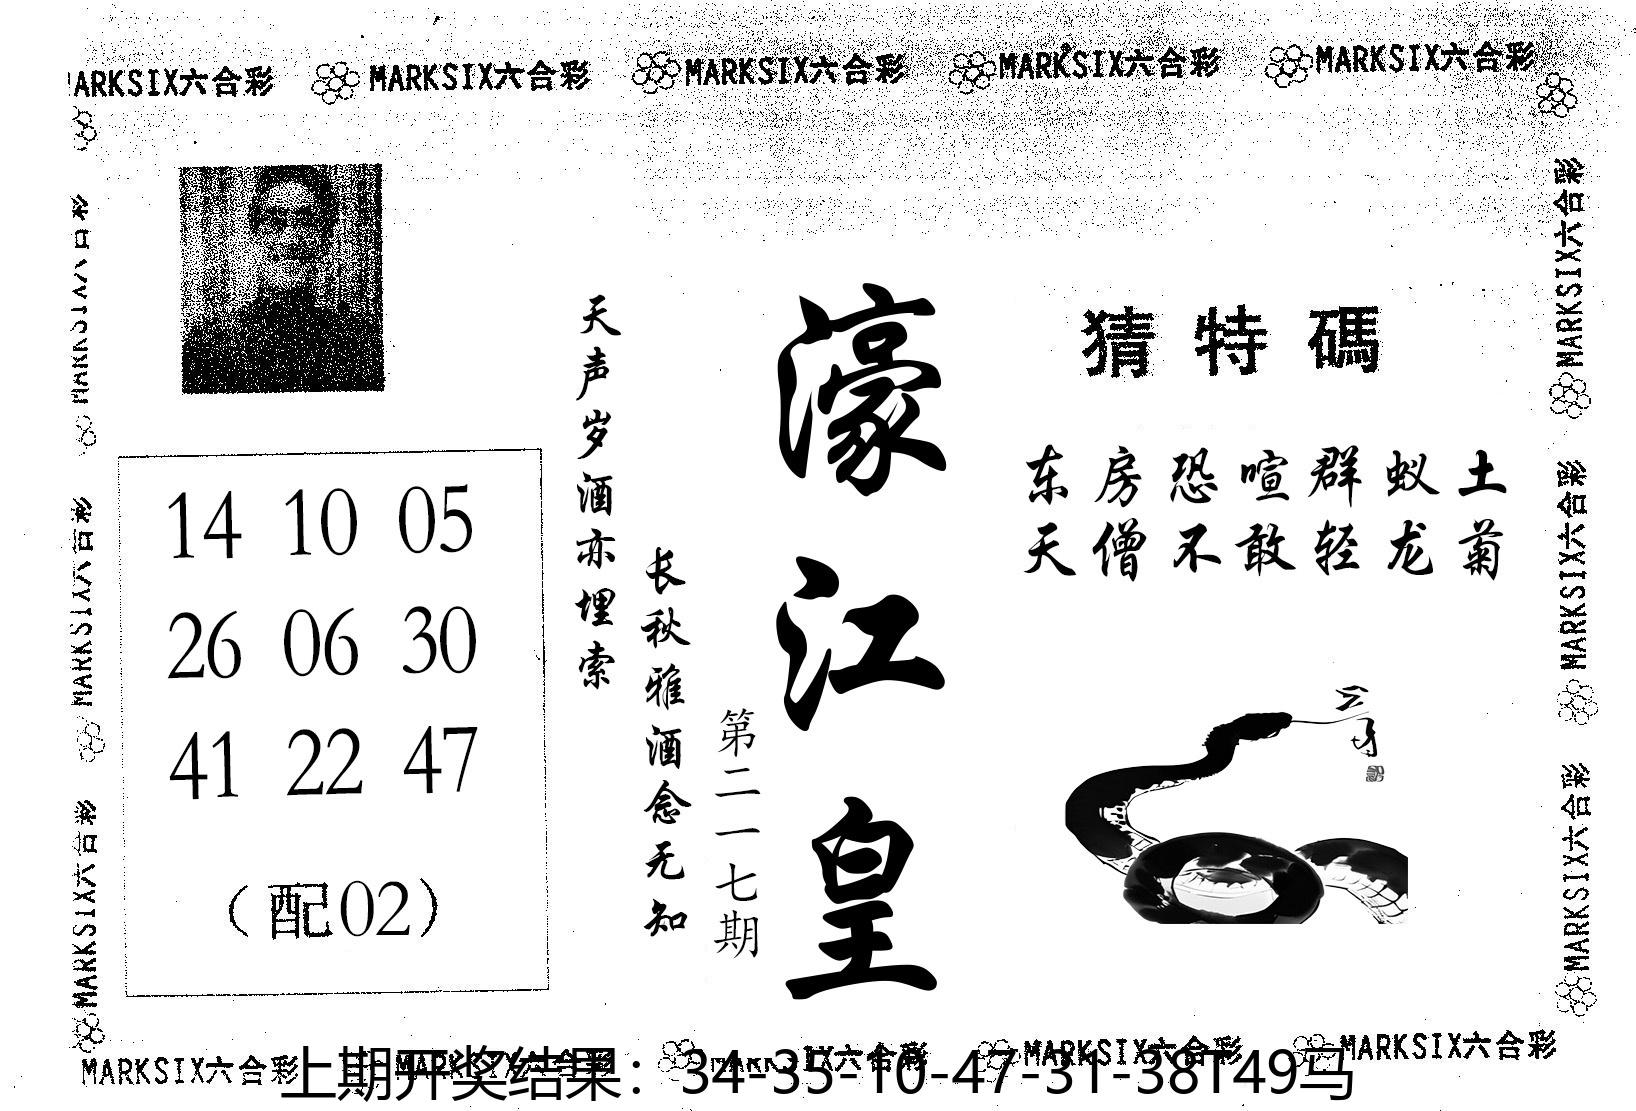 MARKSIX六合彩 MARKSIX六合彩 MARKSIX六合彩 MARKSIX六合彩 MARKSIX六合彩
MARKSIX六合彩
MARKSIX六合彩
MARKSIX六合彩
MARKSIX六合彩
MARKSIX六合彩
MARKSIX六合彩
14 10 05
26 06 30
41 22 47
（配02）
天声岁酒亦埋索
长秋雅酒念无知
第二一七期
濠江皇
猜特碼
东房恐喧群蚁土
天僧不敢轻龙菊
MARKSIX六合彩 MARKSIX六合彩 MARKSIX六合彩 MARKSIX六合彩 MARKSIX六合彩
上期开奖结果：34-35-10-47-31-38T49马